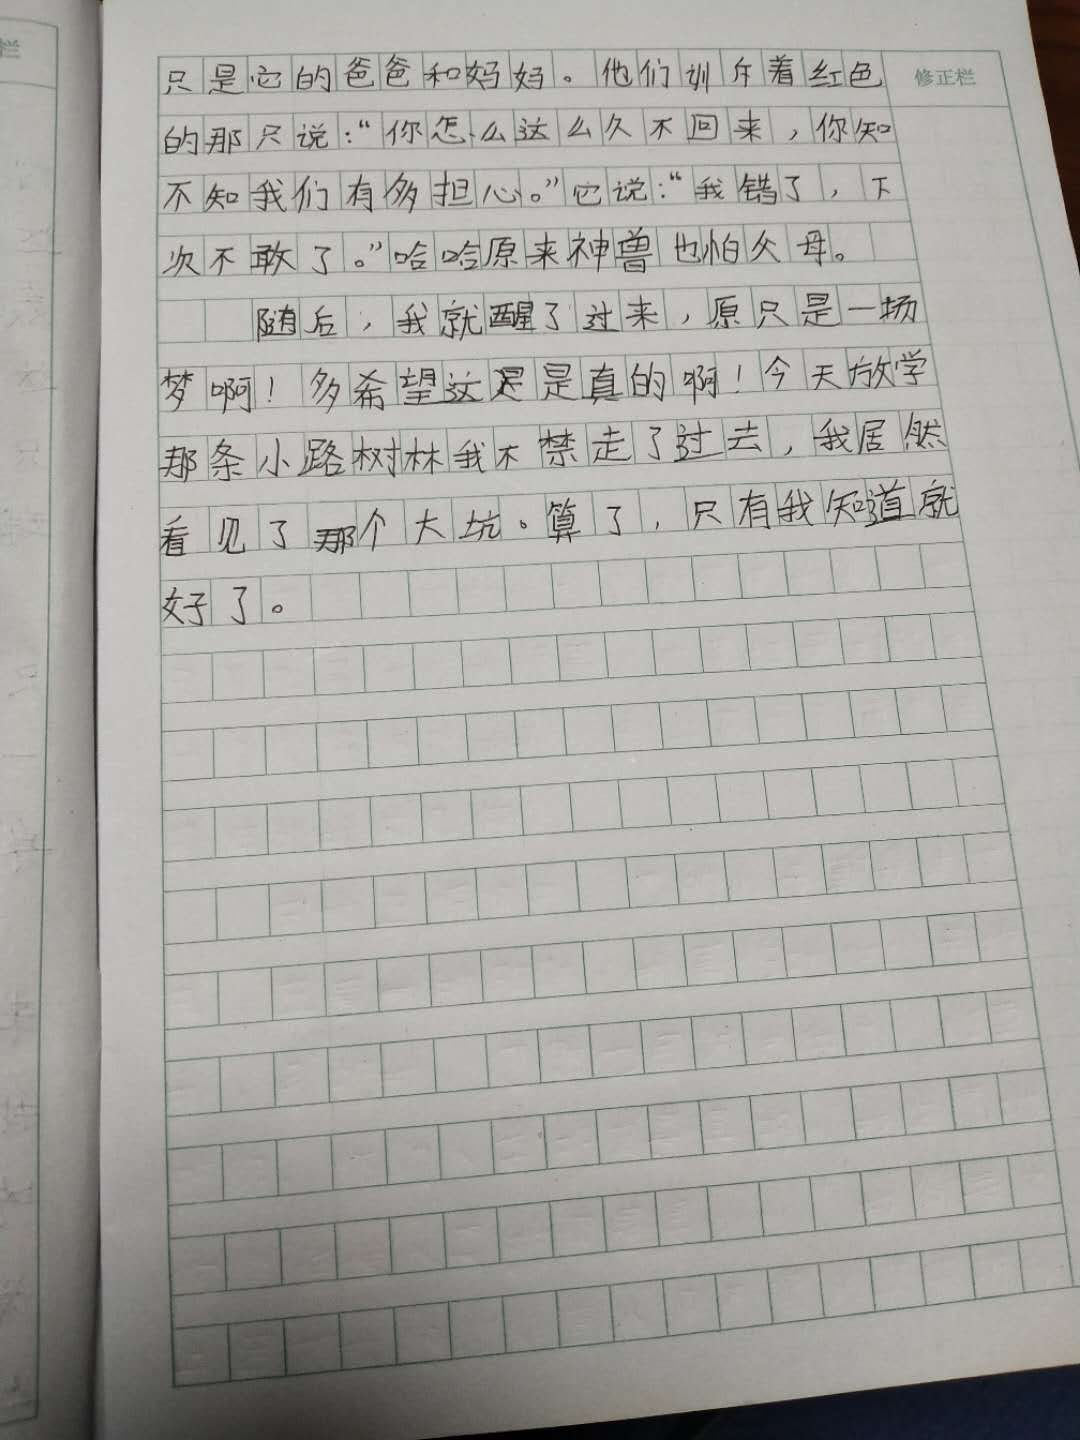 只是它的爸爸和妈妈。他们训斥着红色
修正栏
的那只说：“你怎么这么久不回来，你知
不知我们有多担心。”它说：“我错了，下
次不敢了。”哈哈原来神兽也怕父母。
随后，我就醒了过来，原只是一场
梦啊！多希望这是是真的啊！今天放学
那条小路树林我不禁走了过去，我居然
看见了那个大坑。算了，只有我知道就
好了。